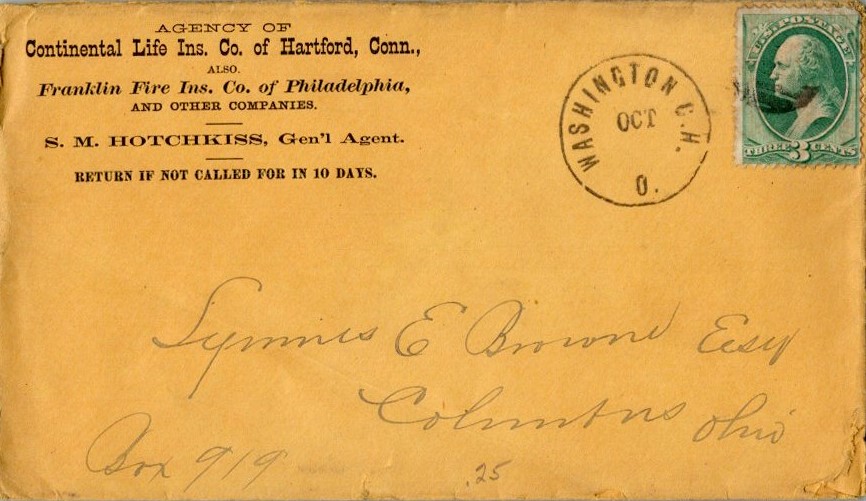 AGENCY OF
Continental Life Ins. Co. of Hartford, Conn.,
ALSO.
Franklin Fire Ins. Co. of Philadelphia,
AND OTHER COMPANIES.
S. M. HOTCHKISS, Gen'l Agent.
RETURN IF NOT CALLED FOR IN 10 DAYS.
WASHINGTON C.H.
OCT
O.
U.S. POSTAGE
THREE 3 CENTS
E Browne Esq
Columbus Ohio
Box 919
.25